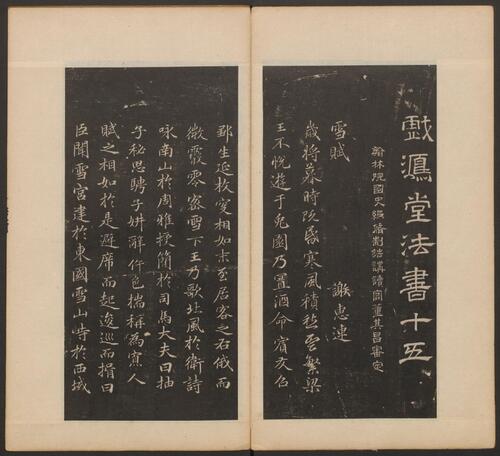 戲鴻堂法書十五
翰林院國史編脩制誥講讀官董其昌審定
雪賦
謝惠連
歲將暮時既昬寒風積愁雲繁梁
王不悅遊于兔園乃置酒命賓友召
鄒生延枚叟相如末至居客之右俄而
微霰零密雪下王乃歌北風於衛詩
咏南山於周雅授簡於司馬大夫曰抽
子秘思騁子妍辭侔色揣稱為寡人
賦之相如於是避席而起逡巡而揖曰
臣聞雪宮建於東國雪山峙於西域